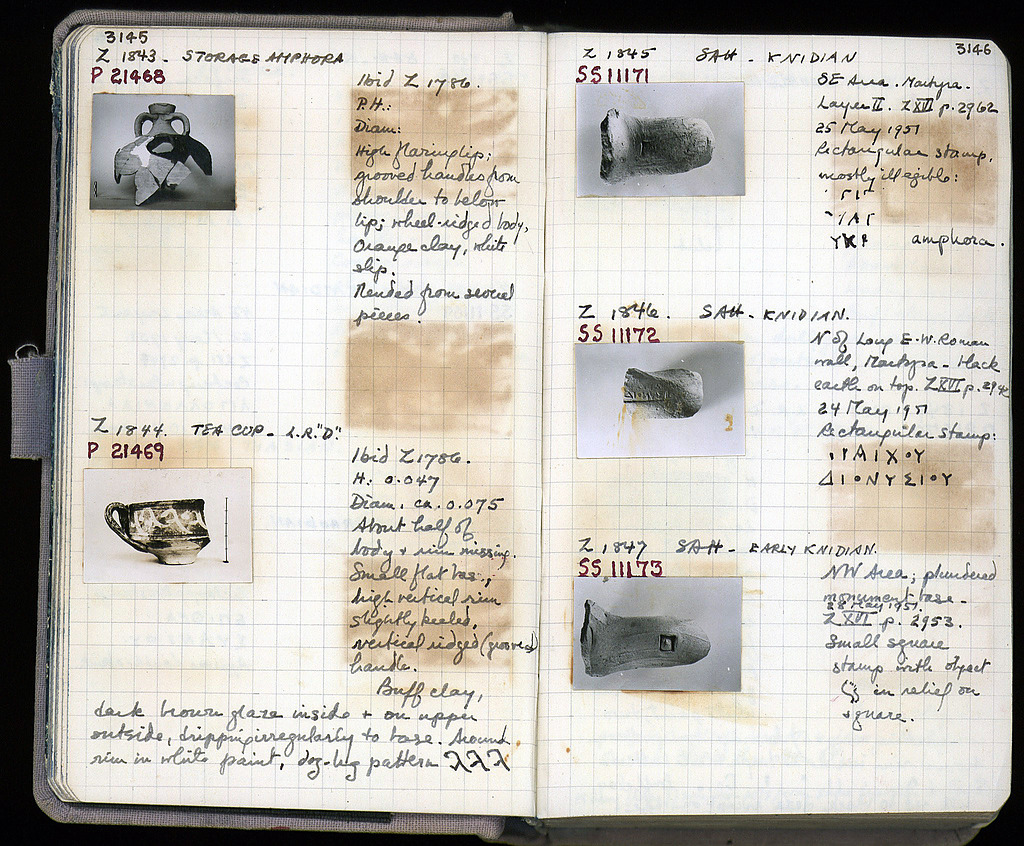 3145
Z 1843. STORAGE AMPHORA
P 21468
Ibid Z 1786.
P.H.:
Diam:
High flaring lip;
grooved handles from
shoulder to below
lip; wheel-ridged body,
Orange clay, white
slip.
Mended from several
pieces.
Z 1844. TEA CUP - L.R."D".
P 21469
Ibid Z 1786.
H: 0.047
Diam. ca. 0.075
About half of
body + rim missing.
Small flat base;
high vertical rim
slightly keeled,
vertical ridged (grooved)
handle.
Buff clay,
dark brown glaze inside + on upper
outside, dripping irregularly to base. Around
rim in white paint, dog-leg pattern
3146
Z 1845 SAH - KNIDIAN
SS 11171
SE Area. Martyra.
Layer II. ZXVI p. 2962
25 May 1951
Rectangular stamp,
mostly illegible:
ΥΚΡ amphora.
Z 1846. SAH - KNIDIAN.
SS 11172
N of Long E-W. Roman
wall, Martyra - black
earth on top. ZXVI p.
24 May 1951
Rectangular stamp:
ΔΙΟΝΥΣΙΟΥ
Z 1847 SAH - EARLY KNIDIAN.
SS 11173
NW Area; plundered
monument base.
28 May 1951.
ZXVI p. 2953.
Small square
stamp with object
in relief on
square.